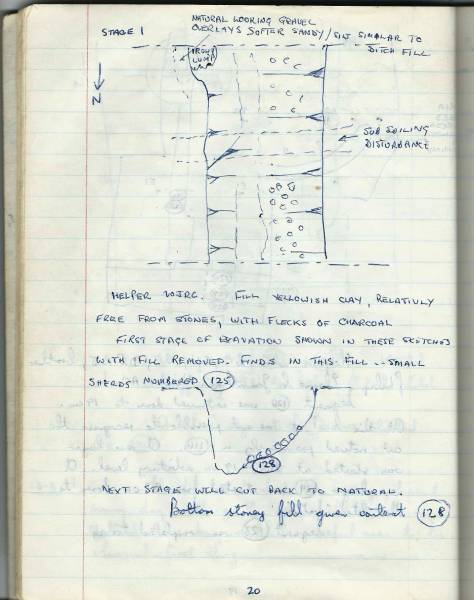 STAGE 1
NATURAL LOOKING GRAVEL
OVERLAYS SOFTER SANDY/SILT SIMILAR TO
DITCH FILL
N
SUB SOILING
DISTURBANCE
HELPER WJRC. FILL YELLOWISH CLAY, RELATIVLY
FREE FROM STONES, WITH FLECKS OF CHARCOAL
FIRST STAGE OF EXAVATION SHOWN IN THESE SKETCHES
WITH FILL REMOVED. FINDS IN THIS FILL -- SMALL
SHERDS NUMBERED 125
128
NEXT STAGE WILL CUT BACK TO NATURAL.
Bottom stoney fill given context 128
20